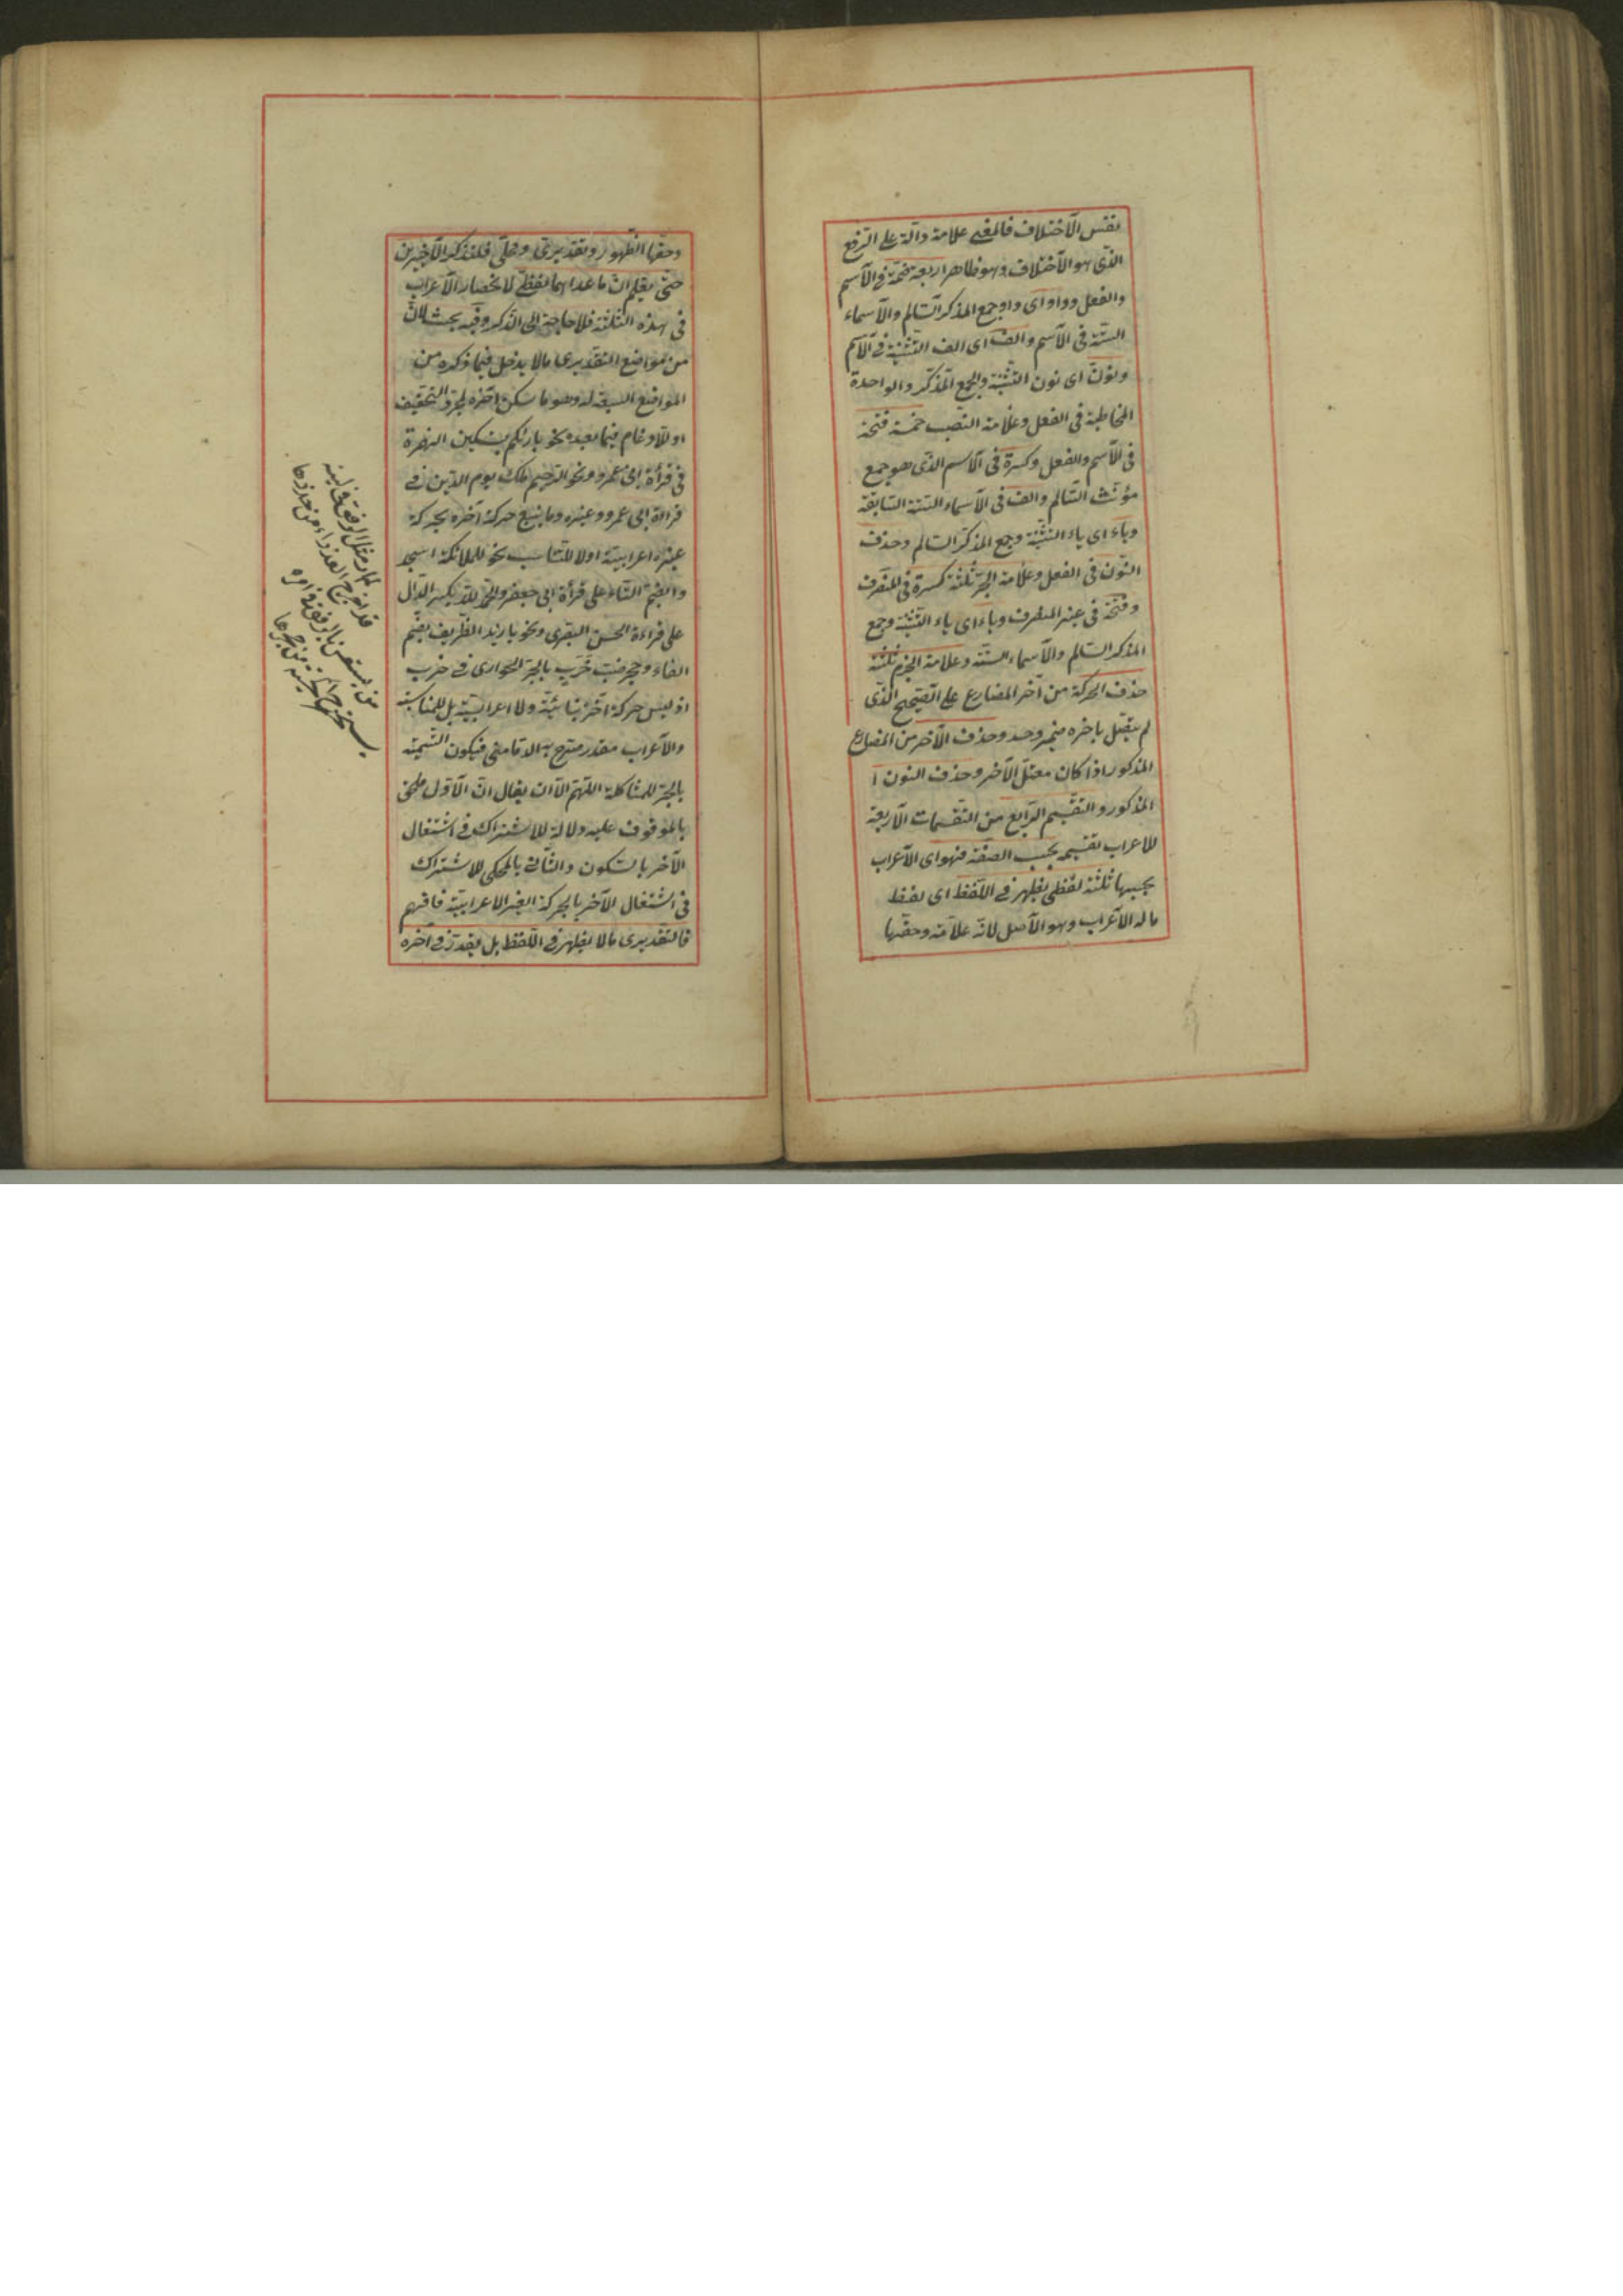 نفس الاختلاف فالمعنى علامة دالة على الرفع
الذى هو الاختلاف وهو ظاهر اربعة ضمة فى الاسم
والفعل وواو اى واو جمع المذكر السالم والاسماء
الستة فى الاسم والف اى الف التثنية فى الاسم
ونون اى نون التثنية والجمع المذكر والواحدة
المخاطبة فى الفعل وعلامة النصب خمسة فتحة
فى الاسم والفعل وكسرة فى الاسم الذى هو جمع
مؤنث السالم والف فى الاسماء الستة السابقة
وياء اى ياء التثنية وجمع المذكر السالم وحذف
النون فى الفعل وعلامة الجر ثلثة كسرة فى المنصرف
وفتحة فى غير المنصرف وياء اى ياء التثنية وجمع
المذكر السالم والاسماء الستة وعلامة الجزم ثلثة
حذف الحركة من آخر المضارع على الصحيح الذى
لم يتصل باخره ضمير وحد وحذف الآخر من المضارع
المذكور اذا كان معتل الآخر وحذف النون ا
المذكور والتقسيم الرابع من التقسمات الاربعة
للاعراب تقسيمه بحسب الصفة فهو اى الاعراب
بحسبها ثلثة لفظى يظهر فى اللفظ اى لفظ
ما له الاعراب وهو الاصل لانه علامة وحقها
وحقها الظهور وتقديرى ومحلى فلنذكر الاخيرين
حتى يعلم ان ما عداهما لفظى لانحصار الاعراب
فى هذه الثلثة فلا حاجة الى الذكر وفيه بحث لان
من مواضع التقديرى ما لا يدخل فيما ذكره من
المواضع السبعة له وهو ما سكن آخره لمجرد التخفيف
او للادغام فيما بعده نحو بارئكم بتسكين الهمزة
فى قرأة ابى عمرو ونحو الرحيم ملك يوم الدين فى
قرائة ابى عمرو وغيره وما يتبع حركة آخره بحركة
غيره اعرابية اولا للتناسب نحو للملائكة اسجد
وا بضم التاء على قرأة ابى جعفر والحمد لله بكسر الدال
على قراءة الحسن البصرى ونحو يا زيد الظريف بضم
الفاء وجحر ضب خرب بالجر الجوارى فى خرب
اذ ليس حركة آخره بنائية ولا اعرابية بل للمناسبة
والاعراب مقدر صرح به الدمامنى فيكون التسمية
بالجر للمشاكلة اللهم الا ان يقال ان الاول ملحق
بالموقوف عليه دلالة للاشتراك فى اشتغال
الآخر بالسكون والثانى بالمحكى للاشتراك
فى اشتغال الآخر بالحركة الغير الاعرابية فافهم
فالتقديرى ما لا يظهر فى اللفظ بل يقدر فى آخره